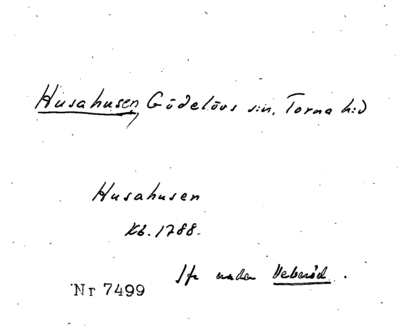 Husahusen, Gödelövs sn, Torna hd
Husahusen
Kb. 1788.
Jfr under Veberöd.
Nr 7499